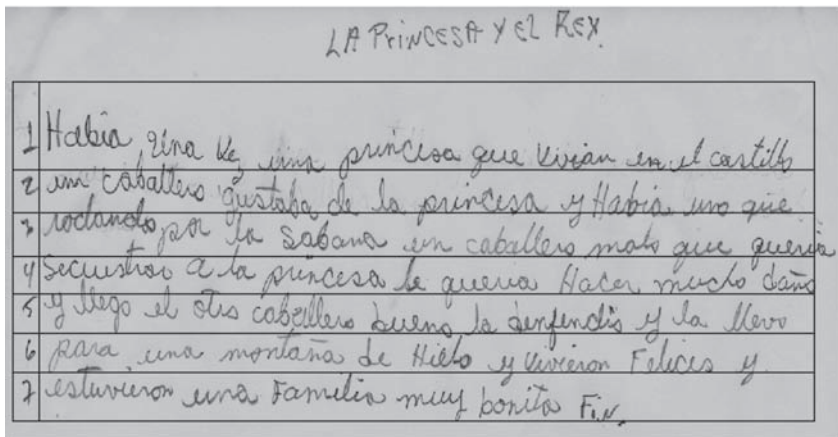 LA PRINCESA Y EL REX.
1 Habia una vez una princesa que vivian en el castillo
2 un caballero gustaba de la princesa y Habia uno que
3 rodando por la Sabana un caballero malo que queria
4 Secuestrar a la princesa le queria Hacer mucho daño
5 y llego el otro caballero bueno la denfendio y la llevo
6 para una montaña de Hielo y vivieron Felices y
7 estuvieron una Familia muy bonita Fin.